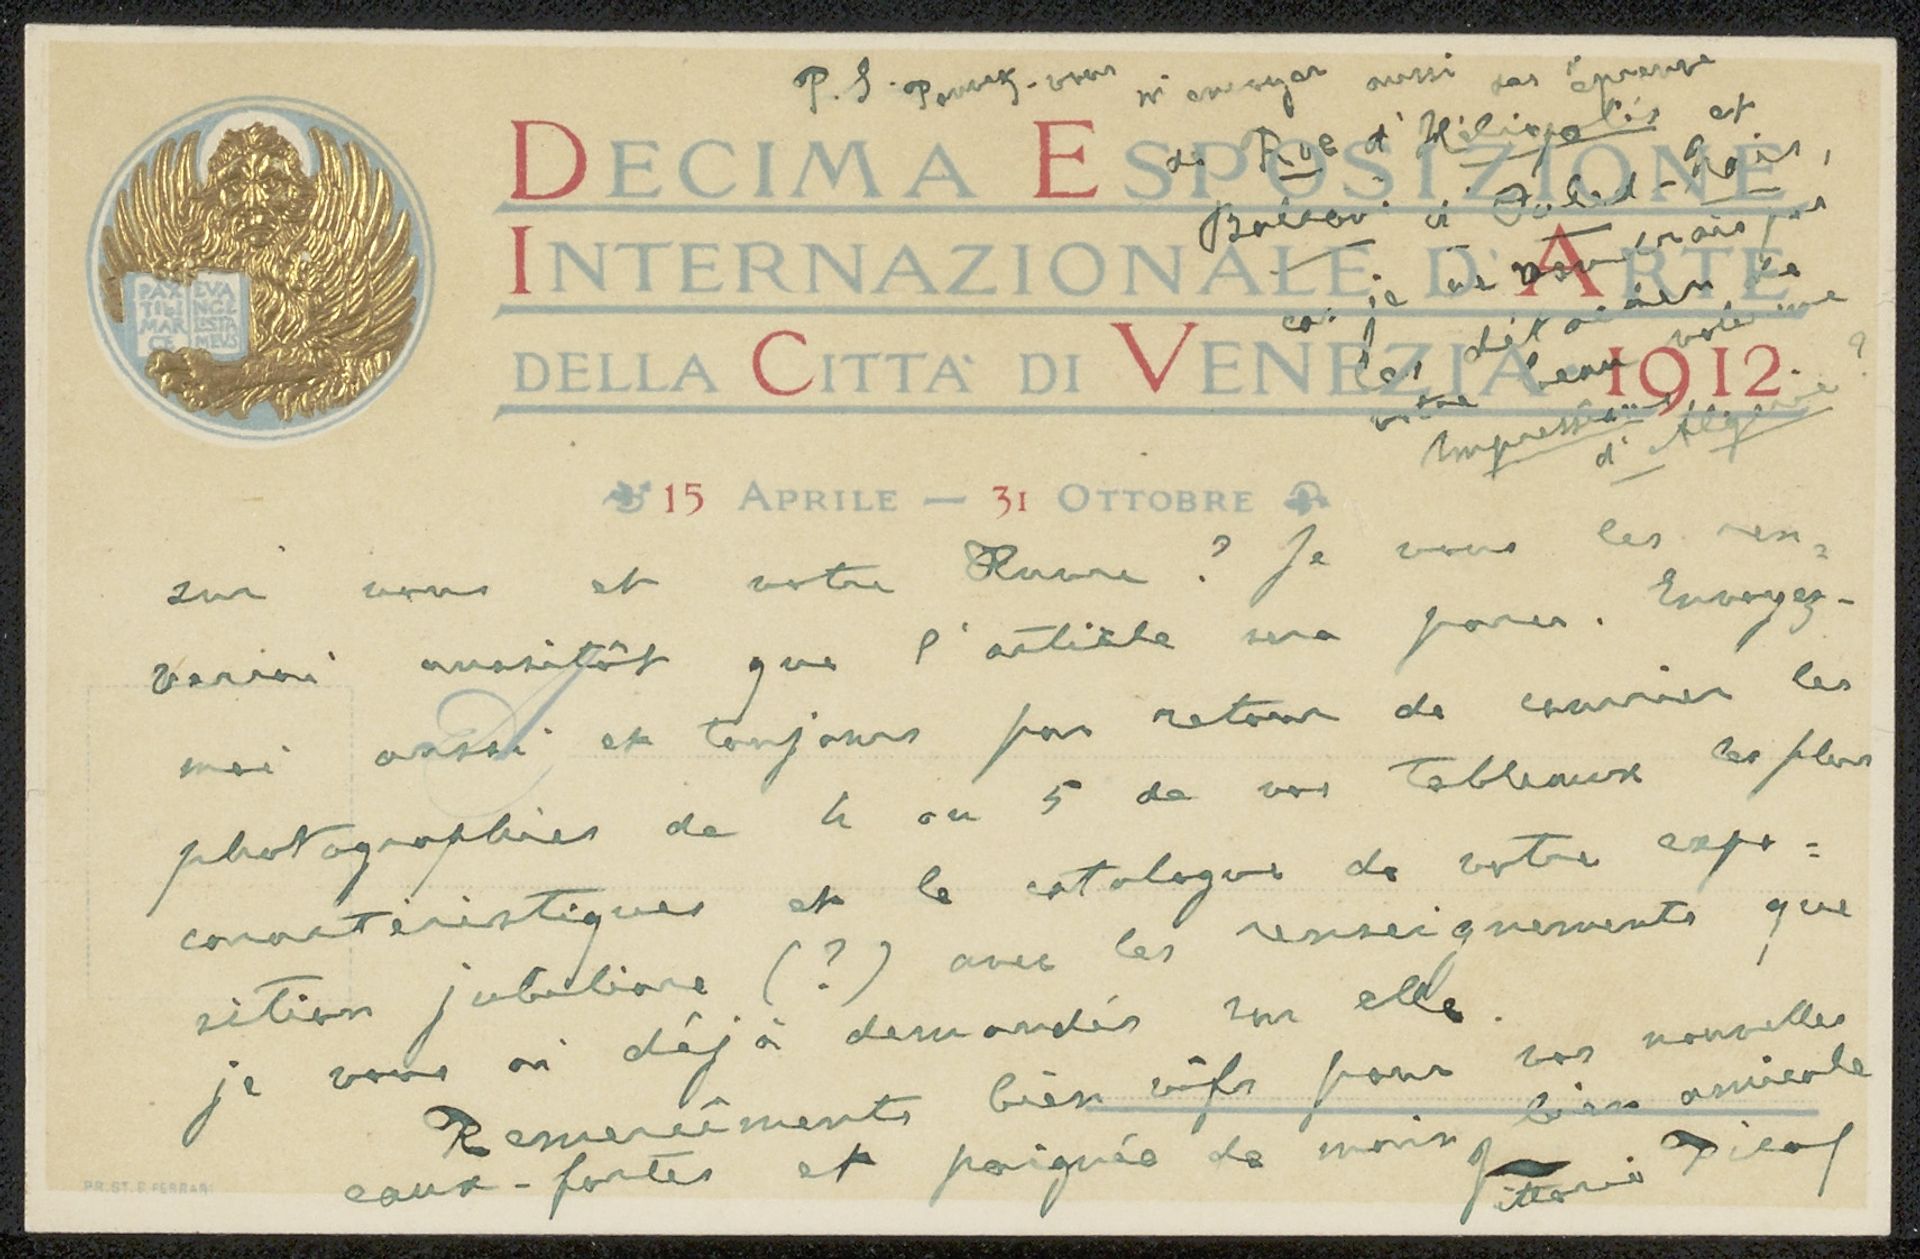 P.S. Pouvez-vous m'envoyer aussi les épreuves
de Rue d'Héliopolis et
car je ne voudrais pas
les détacher de
votre beau volume
Impressions
d'Algérie ?
DECIMA ESPOSIZIONE
INTERNAZIONALE D'ARTE
DELLA CITTA' DI VENEZIA 1912.
PAX EVA
TIBI NGE
MAR LISTA
CE MEVS
15 APRILE — 31 OTTOBRE
sur vous et votre œuvre ? Je vous les ren=
verrai aussitôt que l'article sera paru. Envoyez-
moi aussi et toujours par retour de courrier les
photographies de 4 ou 5 de vos tableaux les plus
caractéristiques et le catalogue de votre expo=
sition jubiliare (?) avec les renseignements que
je vous ai déjà demandés sur elle.
Remerciments bien vifs pour vos nouvelles
eaux-fortes et poignée de main bien amicale
Vittorio Pica
PR. ST. C. FERRARI